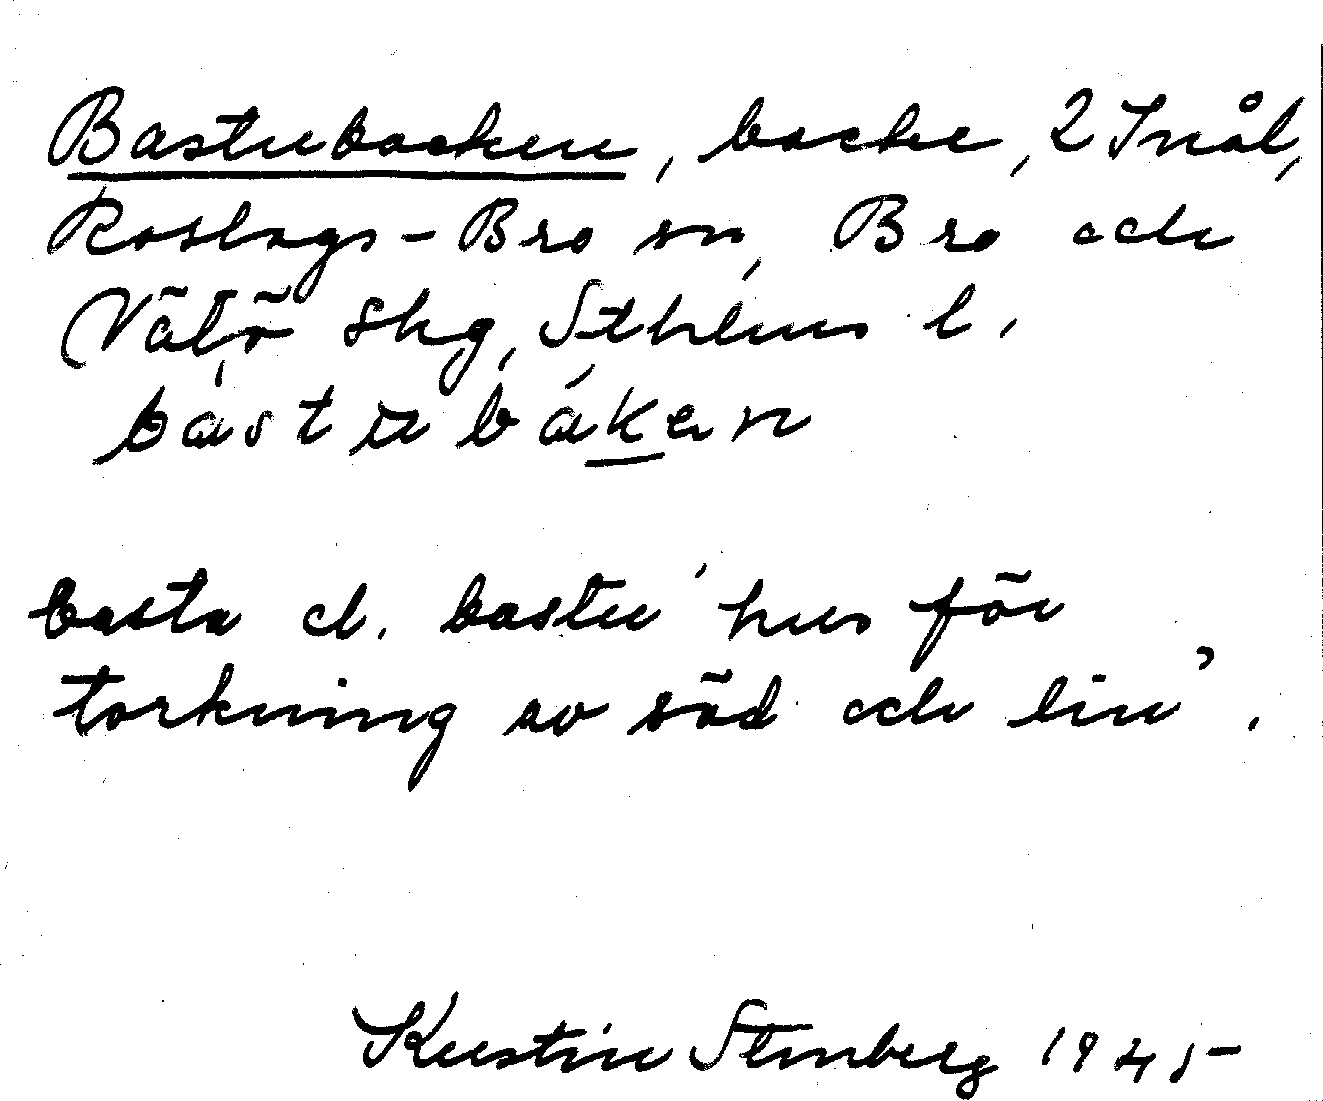 Bastubacken, backe, 2 Snål,
Roslags-Bro sn, Bro och
Vätö skg, Sthlms l.
bastubakan
basta el. bastu 'hus för
torkning av säd och lin'.
Kerstin Stenberg 1945